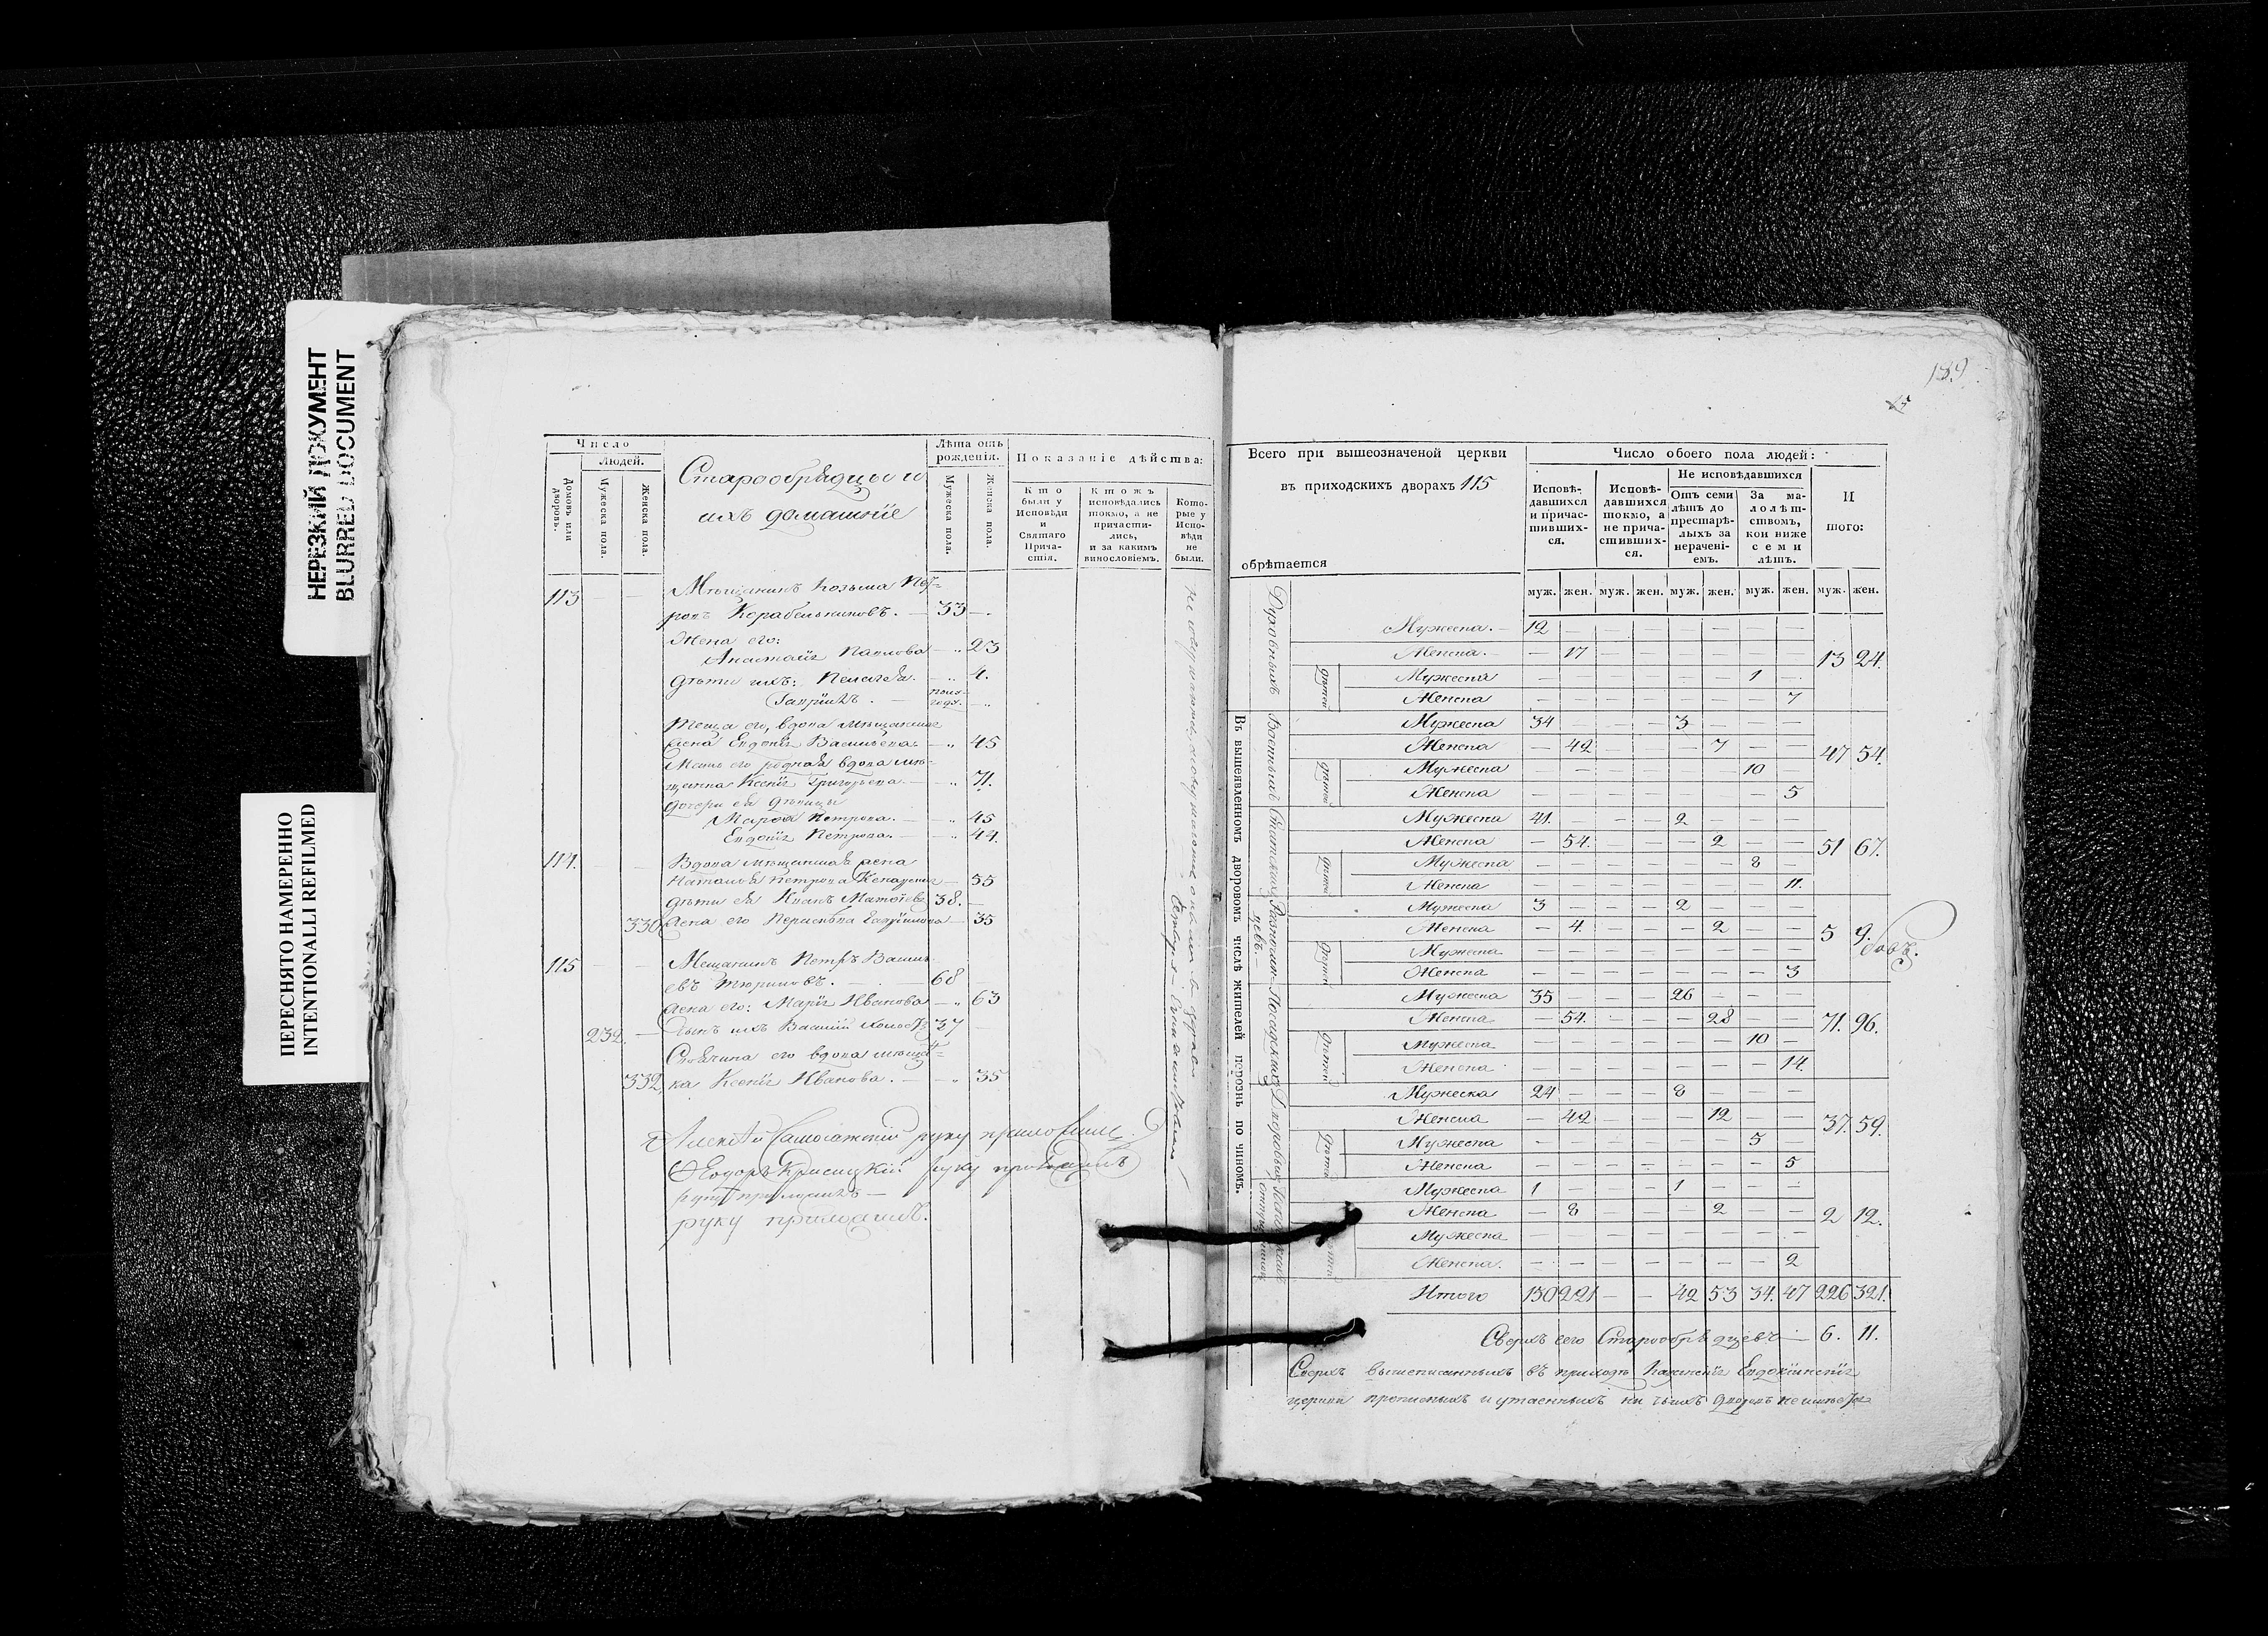 НЕРЕЗКИЙ ДОКУМЕНТ
BLURRED DOCUMENT
ПЕРЕСНЯТО НАМЕРЕННО
INTENTIONALLI REFILMED
Число
Людей.
Домовъ или дворовъ.
Мужеска пола.
Женска пола.
Старообрядцы и
ихъ домашніе
Лѣта отъ рожденія.
Мужеска пола.
Женска пола.
Показаніе дѣйства:
Кто были у Исповѣди и Святаго Причастія.
Ктожъ исповѣдались токмо, а не причастились, и за какимъ винословіемъ.
Которые у Исповѣди не были.
113 — — Мѣщанинъ Козьма Пет-
ровъ Корабельниковъ. — 33 —
Жена его:
Анастасія Павлова — „ 23
Дѣти ихъ: Пелагея. — „ 4.
Гавріилъ. — полу-году. — „
Теща его, вдова мѣщанская
жена Евдокія Васильева. — „ 45
Мать его родная вдова мѣ-
щанка Ксенія Григорьева. — „ 71.
Дочери ея дѣвицы
Марѳа Петрова. — „ 45
Евдокія Петрова. — „ 44.
114. — — Вдова мѣщанская жена
Наталья Петрова — 55
дѣти ея Иванъ 38. —
330 жена его — 35
115 — — Мещанинъ Петръ Василь-
евъ Тюриновъ. — 68
жена его: Марія Иванова — „ 63
232. — сынъ ихъ Василій холостъ 37
его вдова мѣщан-
332. ка Ксенія Иванова. — „ 35
Алексѣй руку приложилъ.
Ѳеодоръ руку приложилъ
руку приложилъ —
руку приложилъ.
189
Всего при вышеозначеной церкви
въ приходскихъ дворахъ 115
обрѣтается
Число обоего пола людей:
Исповѣдавшихся и причастившихся.
Исповѣдавшихся токмо, а не причастившихся.
Не исповѣдавшихся
Отъ семи лѣтъ до престарѣлыхъ за нераченіемъ.
За малолѣтствомъ, кои ниже семи лѣтъ.
И того:
муж. жен. муж. жен. муж. жен. муж. жен. муж. жен.
Въ вышеявленномъ дворовомъ числѣ жителей порознь по чиномъ.
Духовныхъ
Мужеска. — 12 — — — — — — —
Женска. — 17 — — — — — — 13 24.
Дѣтей
Мужеска — — — — — — 1 —
Женска — — — — — — — 7
Военныхъ
Мужеска 34 — — — 3 — — —
Женска — 42 — — — 7 — — 47 54.
Дѣтей
Мужеска — — — — — — 10 —
Женска — — — — — — — 5
Статскихъ
Мужеска 41. — — — 2 — — —
Женска — 54. — — — 2 — — 51 67.
Дѣтей
Мужеска — — — — — — 8 —
Женска — — — — — — — 11.
Разночин-
цевъ. —
Мужеска 3 — — — 2 — — —
Женска — 4. — — — 2 — — 5 9.
Дѣтей
Мужеска — — — — — — — —
Женска — — — — — — — 3
Посадскихъ
Мужеска 35 — — — 26 — — —
Женска — 54. — — — 28 — — 71. 96.
Дѣтей
Мужеска — — — — — — 10 —
Женска — — — — — — — 14.
Дворовыхъ
Мужеска 24 — — — 8 — — —
Женска — 42 — — — 12 — — 37. 59.
Дѣтей
Мужеска — — — — — — 5 —
Женска — — — — — — — 5
Мужеска 1 — — — 1 — — —
Женска — 8 — — — 2 — — 2 12.
Мужеска — — — — — — — —
Женска. — — — — — — — 2
Итого 150 221 — — 42 53 34. 47 226 321.
Сверхъ сего Старообрядцевъ — 6. 11.
Сверхъ вышеписанныхъ въ приходѣ Казанскія Евдокіинскія
церкви прописныхъ и утаенныхъ ни чьихъ дворовъ не имѣется